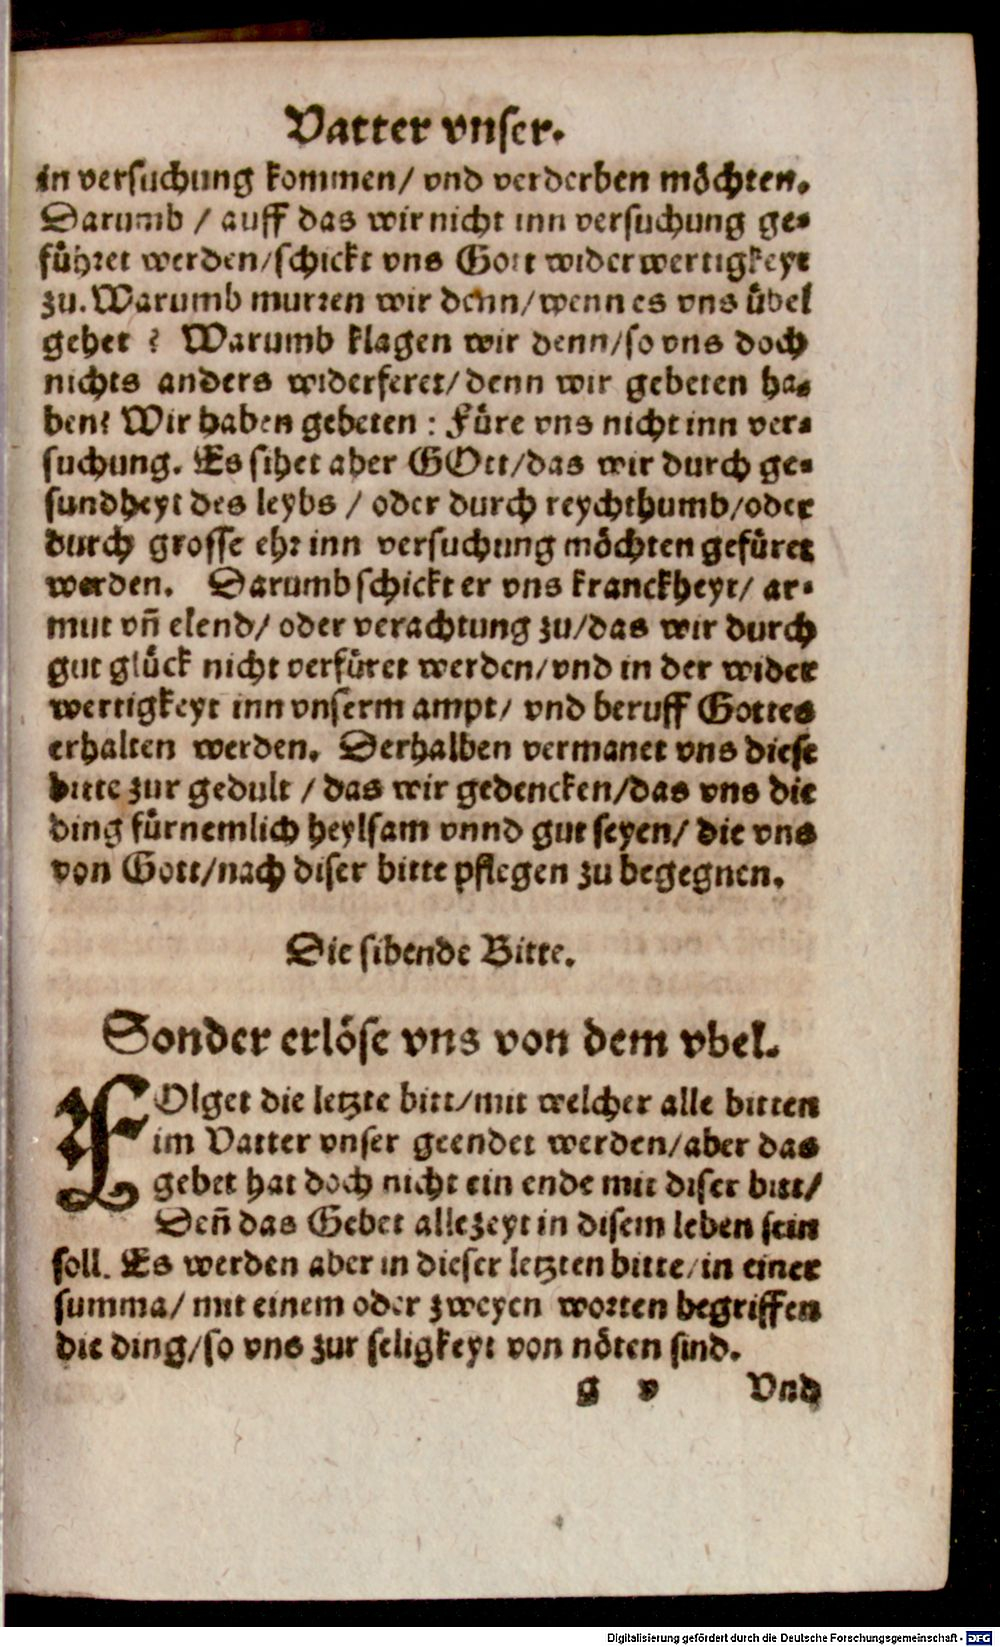 Vatter vnser.
in versuchung kommen/ vnd verderben möchten.
Darumb / auff das wir nicht inn versuchung ge-
führet werden/schickt vns Gott widerwertigkeyt
zu. Warumb murren wir denn/wenn es vns übel
gehet ? Warumb klagen wir denn/so vns doch
nichts anders widerferet/denn wir gebeten ha-
ben? Wir haben gebeten : Füre vns nicht inn ver-
suchung. Es sihet aber GOtt/das wir durch ge-
sundheyt des leybs / oder durch reychthumb/oder
durch grosse ehr inn versuchung möchten gefüret
werden. Darumb schickt er vns kranckheyt/ ar-
mut vñ elend/ oder verachtung zu/das wir durch
gut glück nicht verfüret werden/vnd in der wider
wertigkeyt inn vnserm ampt/ vnd beruff Gottes
erhalten werden. Derhalben vermanet vns diese
bitte zur gedult / das wir gedencken/das vns die
ding fürnemlich heylsam vnnd gut seyen/ die vns
von Gott/nach diser bitte pflegen zu begegnen.
Die sibende Bitte.
Sonder erlöse vns von dem vbel.
FOlget die letzte bitt/mit welcher alle bitten
im Vatter vnser geendet werden/aber das
gebet hat doch nicht ein ende mit diser bitt/
Deñ das Gebet allezeyt in disem leben sein
soll. Es werden aber in dieser letzten bitte/in einer
summa/ mit einem oder zweyen worten begriffen
die ding/so vns zur seligkeyt von nöten sind.
g v Vnd
Digitalisierung gefördert durch die Deutsche Forschungsgemeinschaft - DFG